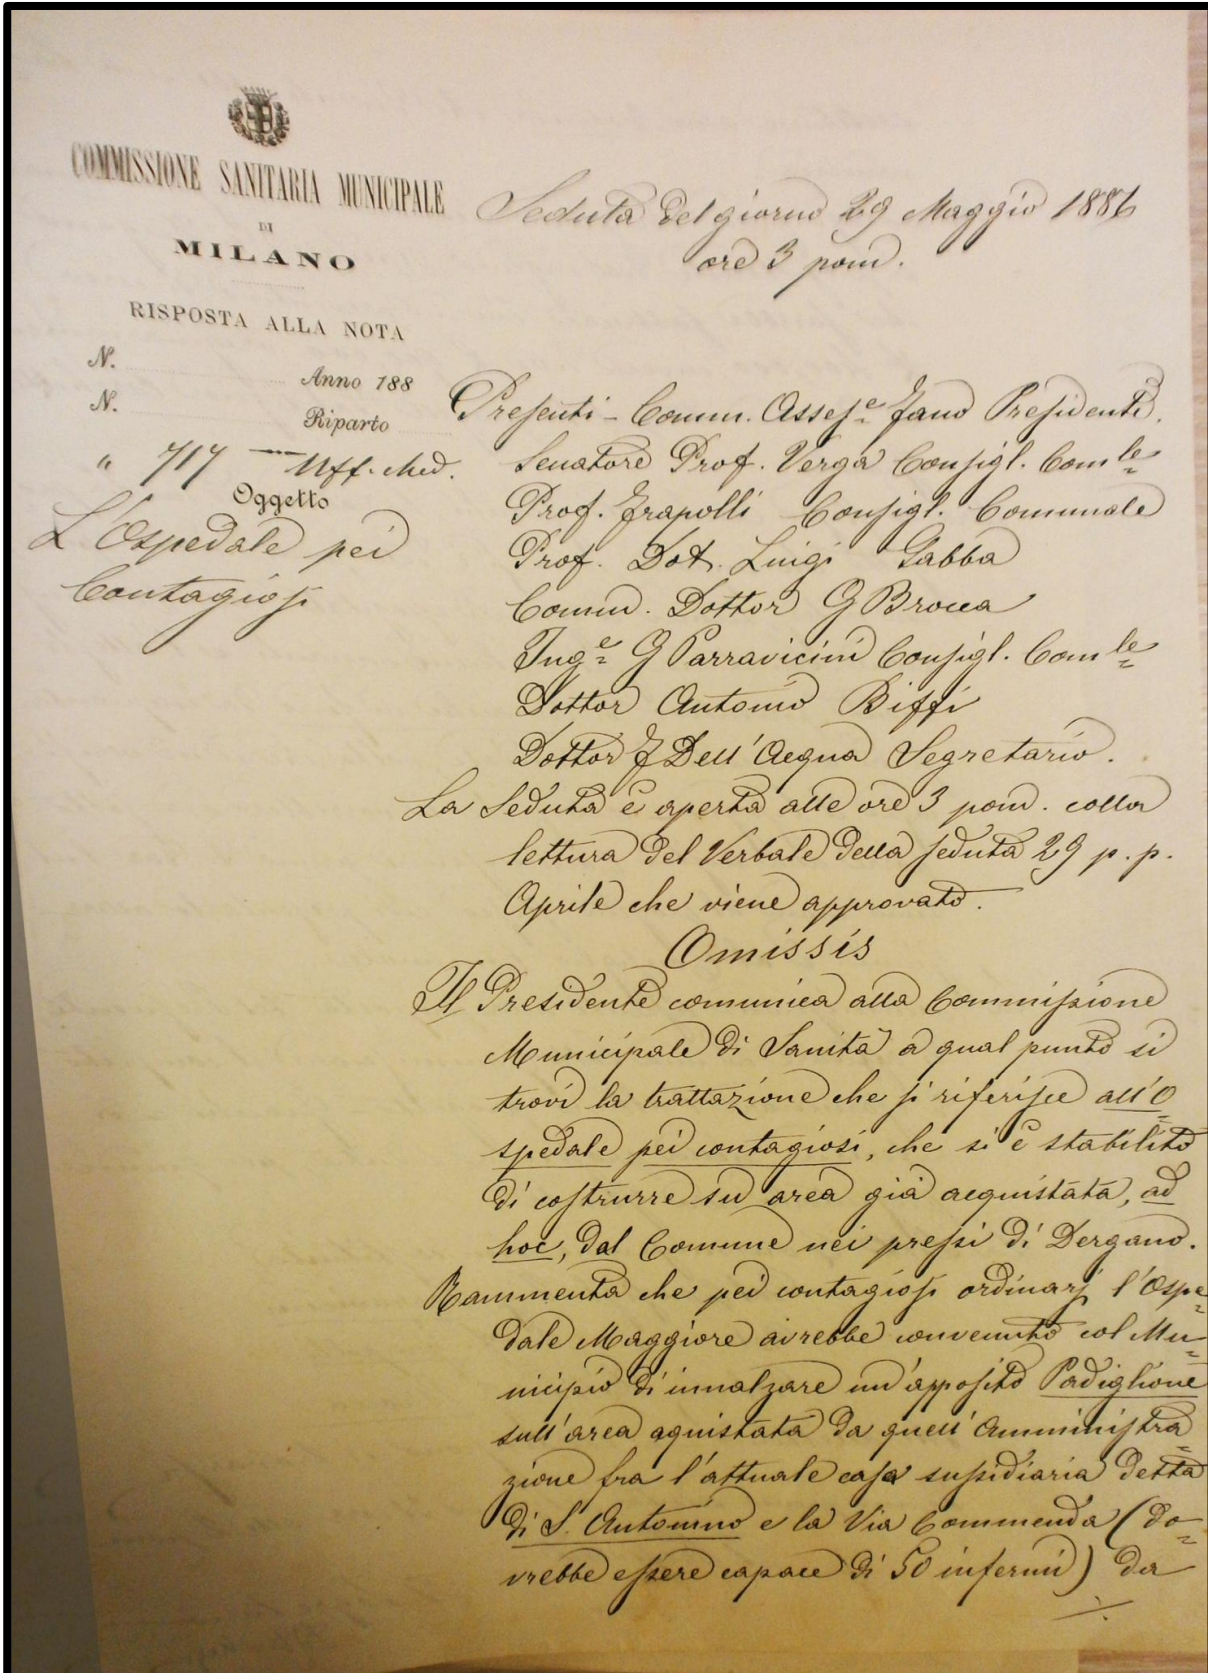 COMMISSIONE SANITARIA MUNICIPALE
DI
MILANO
RISPOSTA ALLA NOTA
N. Anno 188
N. Riparto
" 717 — Uff. Med.
Oggetto
L'Ospedale pei
Contagiosi
Seduta del giorno 29 Maggio 1886
ore 3 pom.
Presenti - Comm. Assesᵉ Fano Presidente.
Senatore Prof. Verga Consigl. Comˡᵉ
Prof. Frapolli Consigl. Comunale
Prof. Dot. Luigi Gabba
Comm. Dottor G Brocca
Ingᵉ G Parravicini Consigl. Comˡᵉ
Dottor Antonio Biffi
Dottor F Dell'Acqua Segretario.
La Seduta è aperta alle ore 3 pom. colla
lettura del Verbale della seduta 29 p. p.
Aprile che viene approvato.
Omissis
Il Presidente comunica alla Commissione
Municipale di Sanità a qual punto si
trovi la trattazione che si riferisce all'O=
spedale pei contagiosi, che si è stabilito
di costrurre su area già acquistata, ad
hoc, dal Comune nei pressi di Dergano.
Rammenta che pei contagiosi ordinarj l'Ospe=
dale Maggiore avrebbe convenuto col Mu=
nicipio di innalzare un'apposito Padiglione
sull'area aquistata da quell'Amministra=
zione fra l'attuale casa sussidiaria detta
di S. Antonino e la Via Commenda (do=
vrebbe essere capace di 50 infermi) da
./.